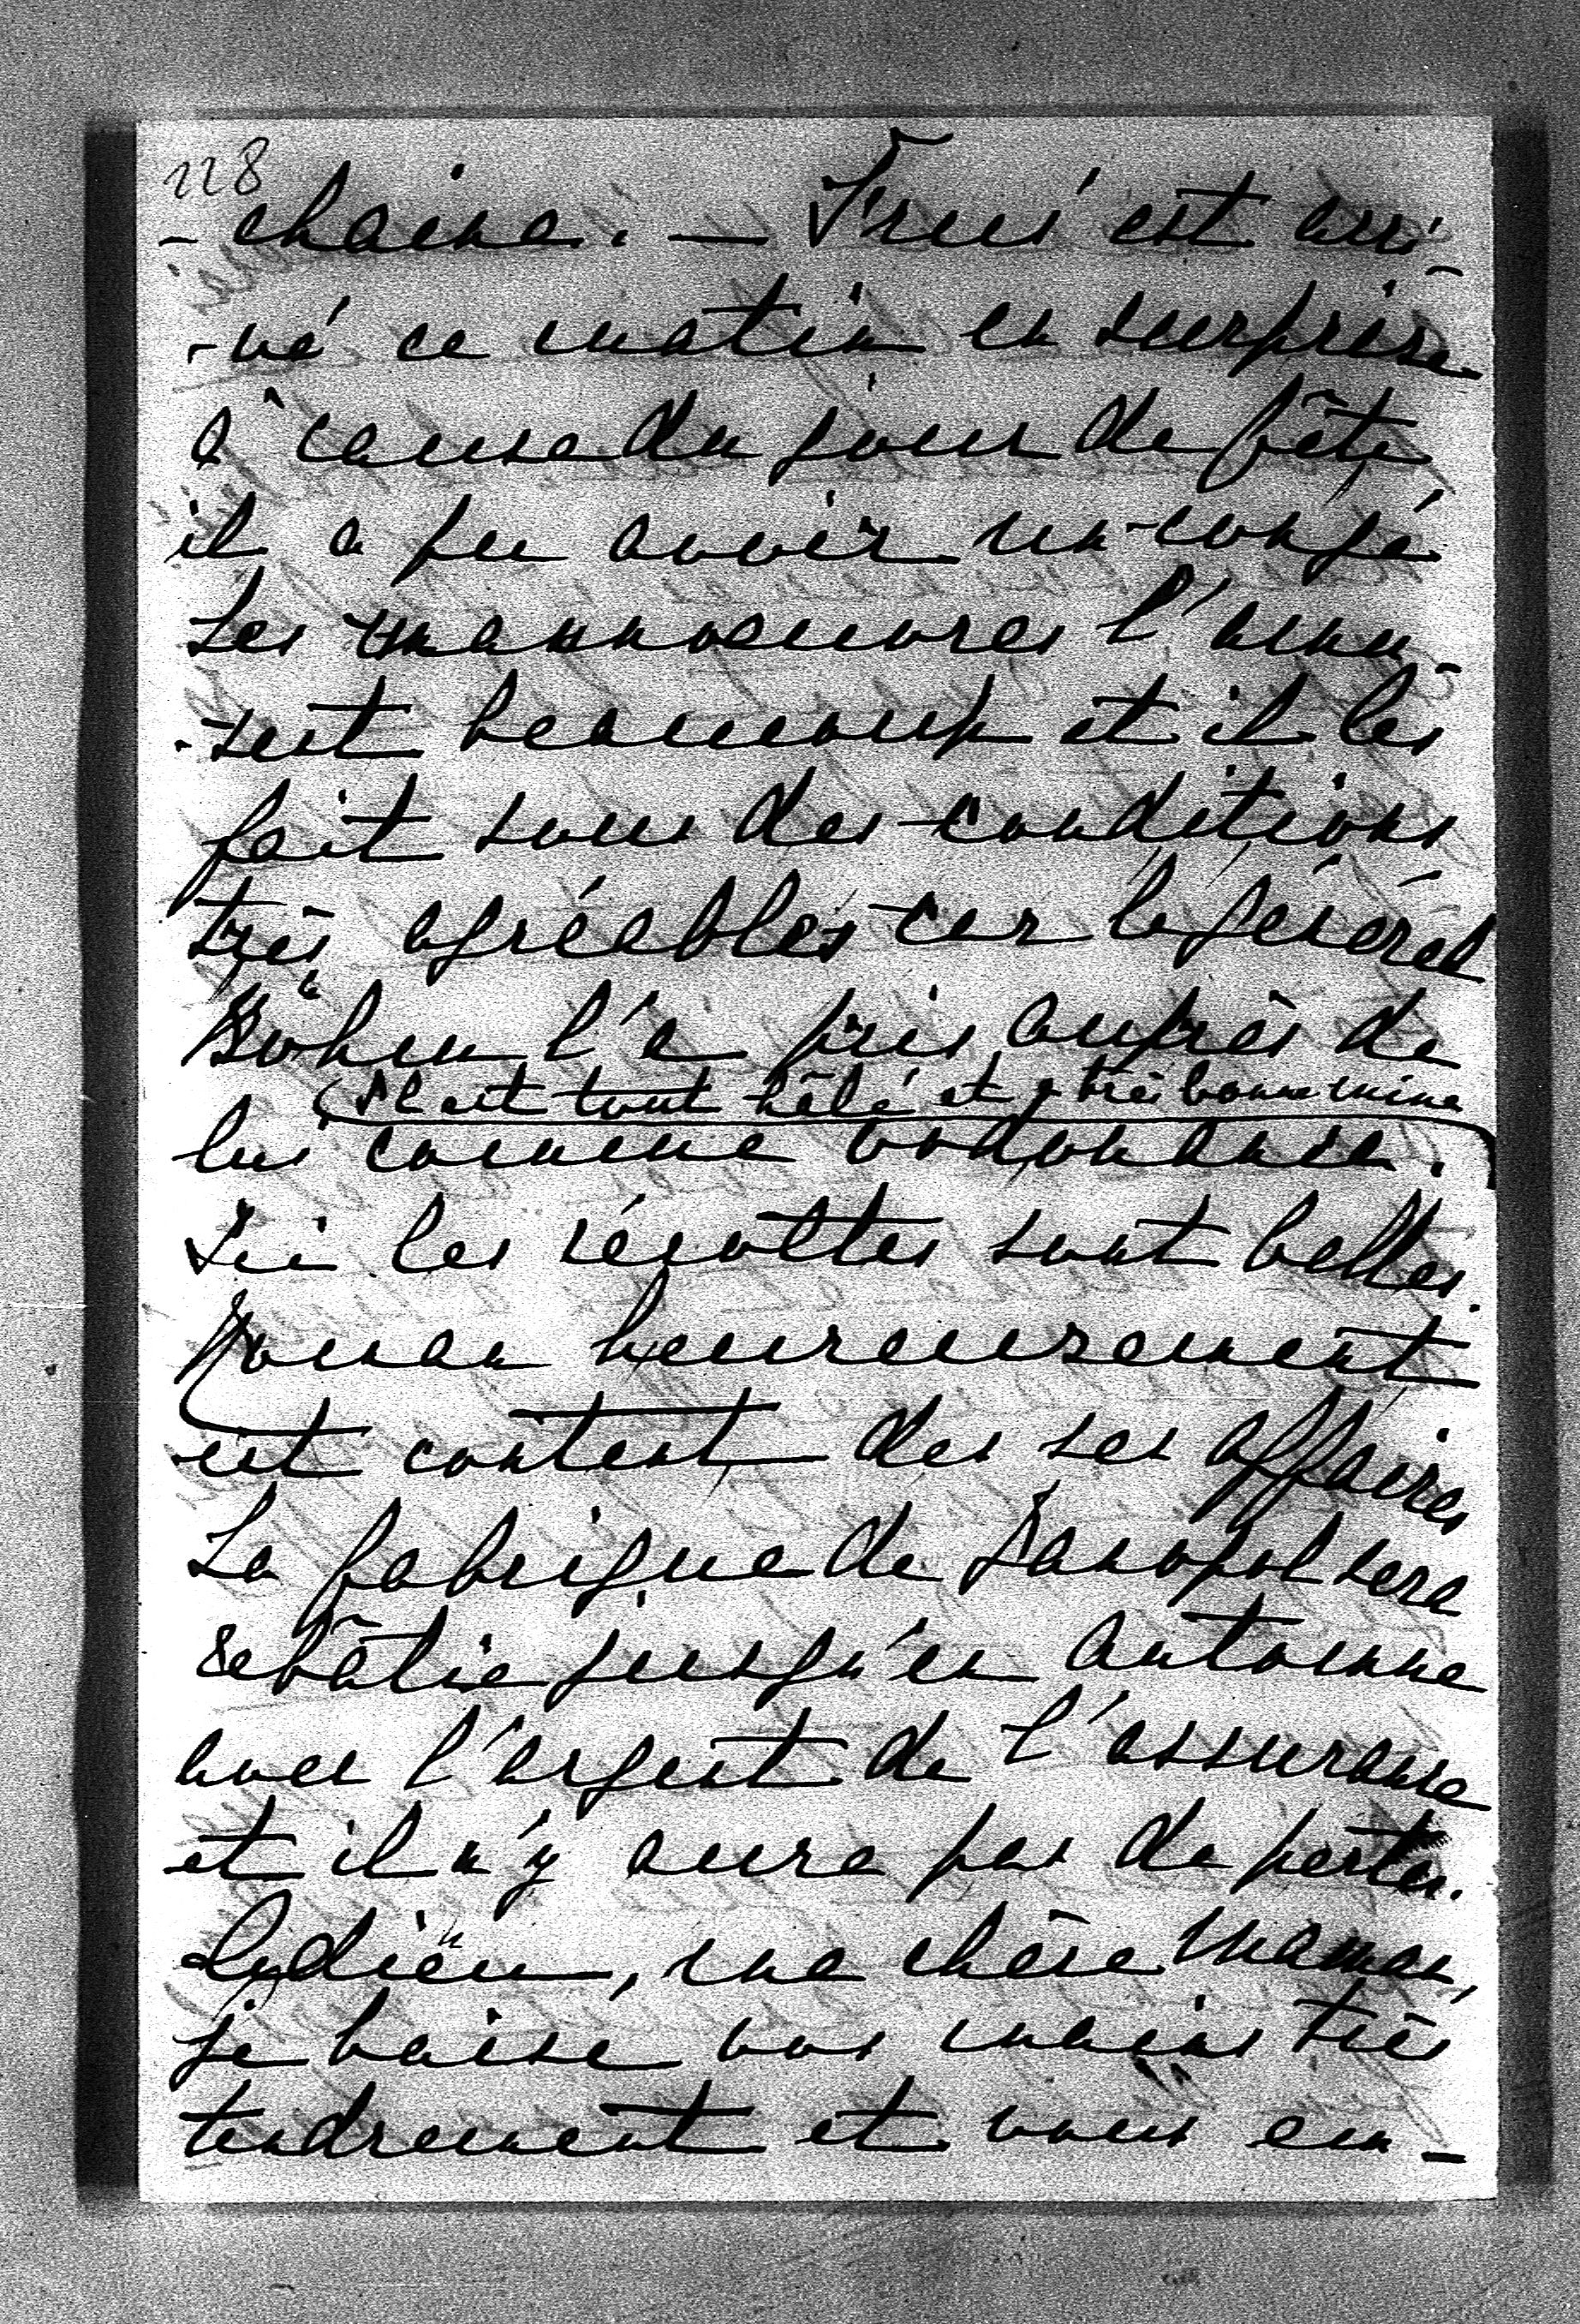 128
-chaine. — Fruś est arri-
-vé ce matin en surprise
à cause du jour de fête
il a pu avoir un congé
Les mannoeuvres l'amu-
-sent beaucoup et il les
fait sous des conditions
très agréables car le général
Böhm l'a pris auprès de
(Il est tout hâlé et a très bonne mine
lui comme ordonnance.
Ici les récoltes sont belles.
Roman heureusement
est content des ses affaires
La fabrique de sera
rebâtie jusqu'en automne
avec l'argent de l'assurance
et il n'y aura pas de pertes.
, ma chère Maman,
je baise vos mains très
tendrement et vous em-